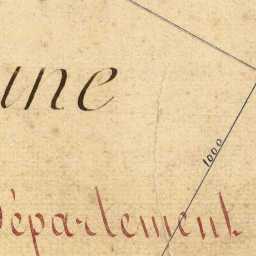 une
1000
Département